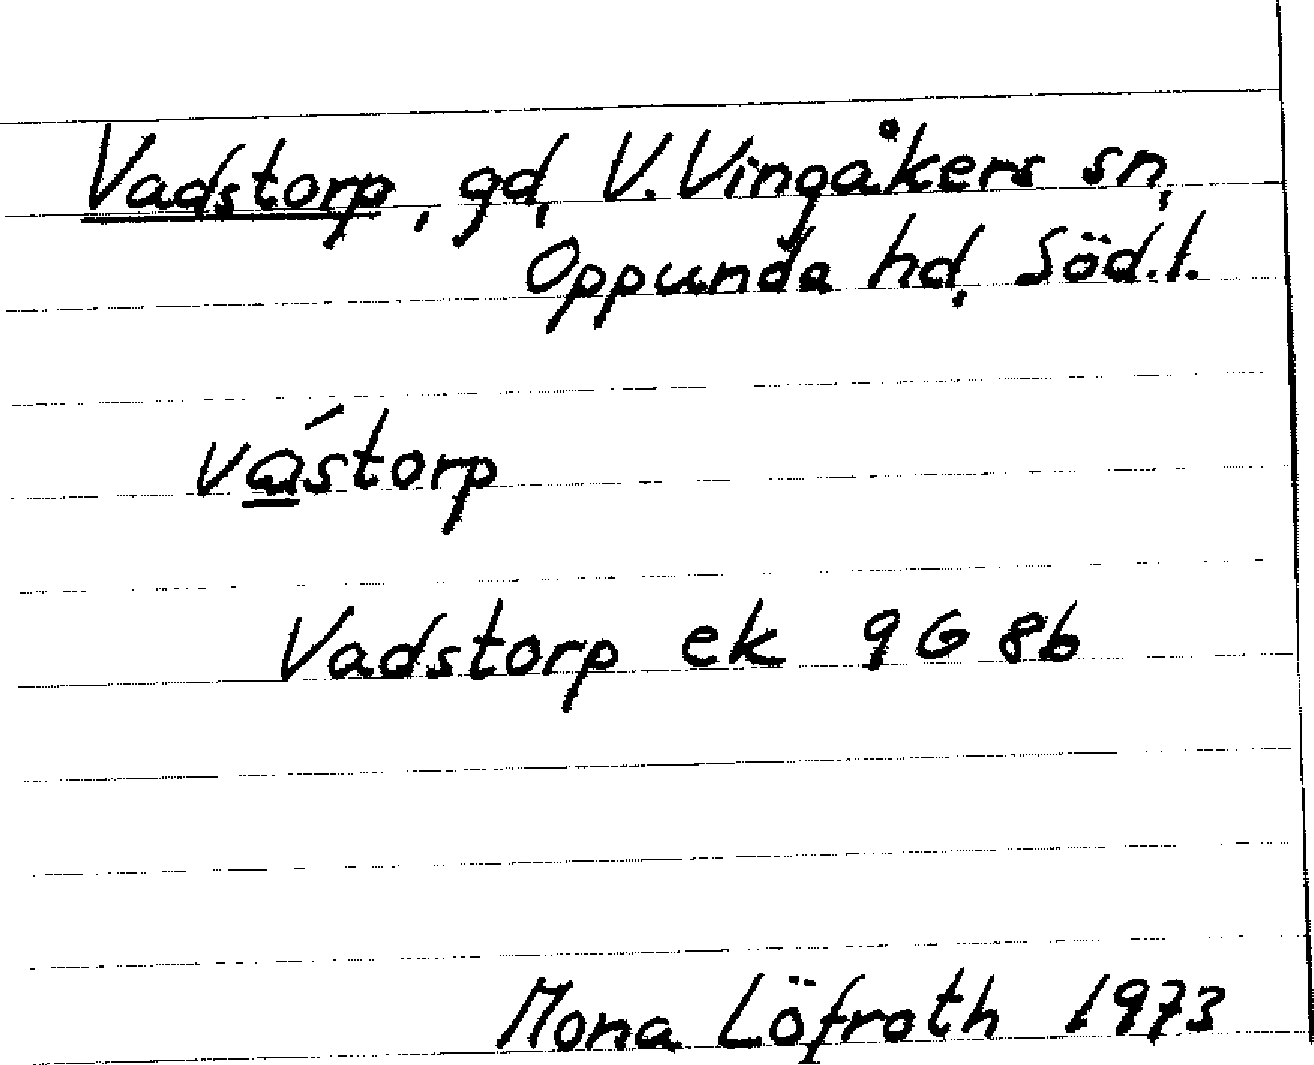 Vadstorp, gd, V. Vingåkers sn,
Oppunda hd, Söd.l.
va̲´storp
Vadstorp ek 9G 8b
Mona Löfroth 1973